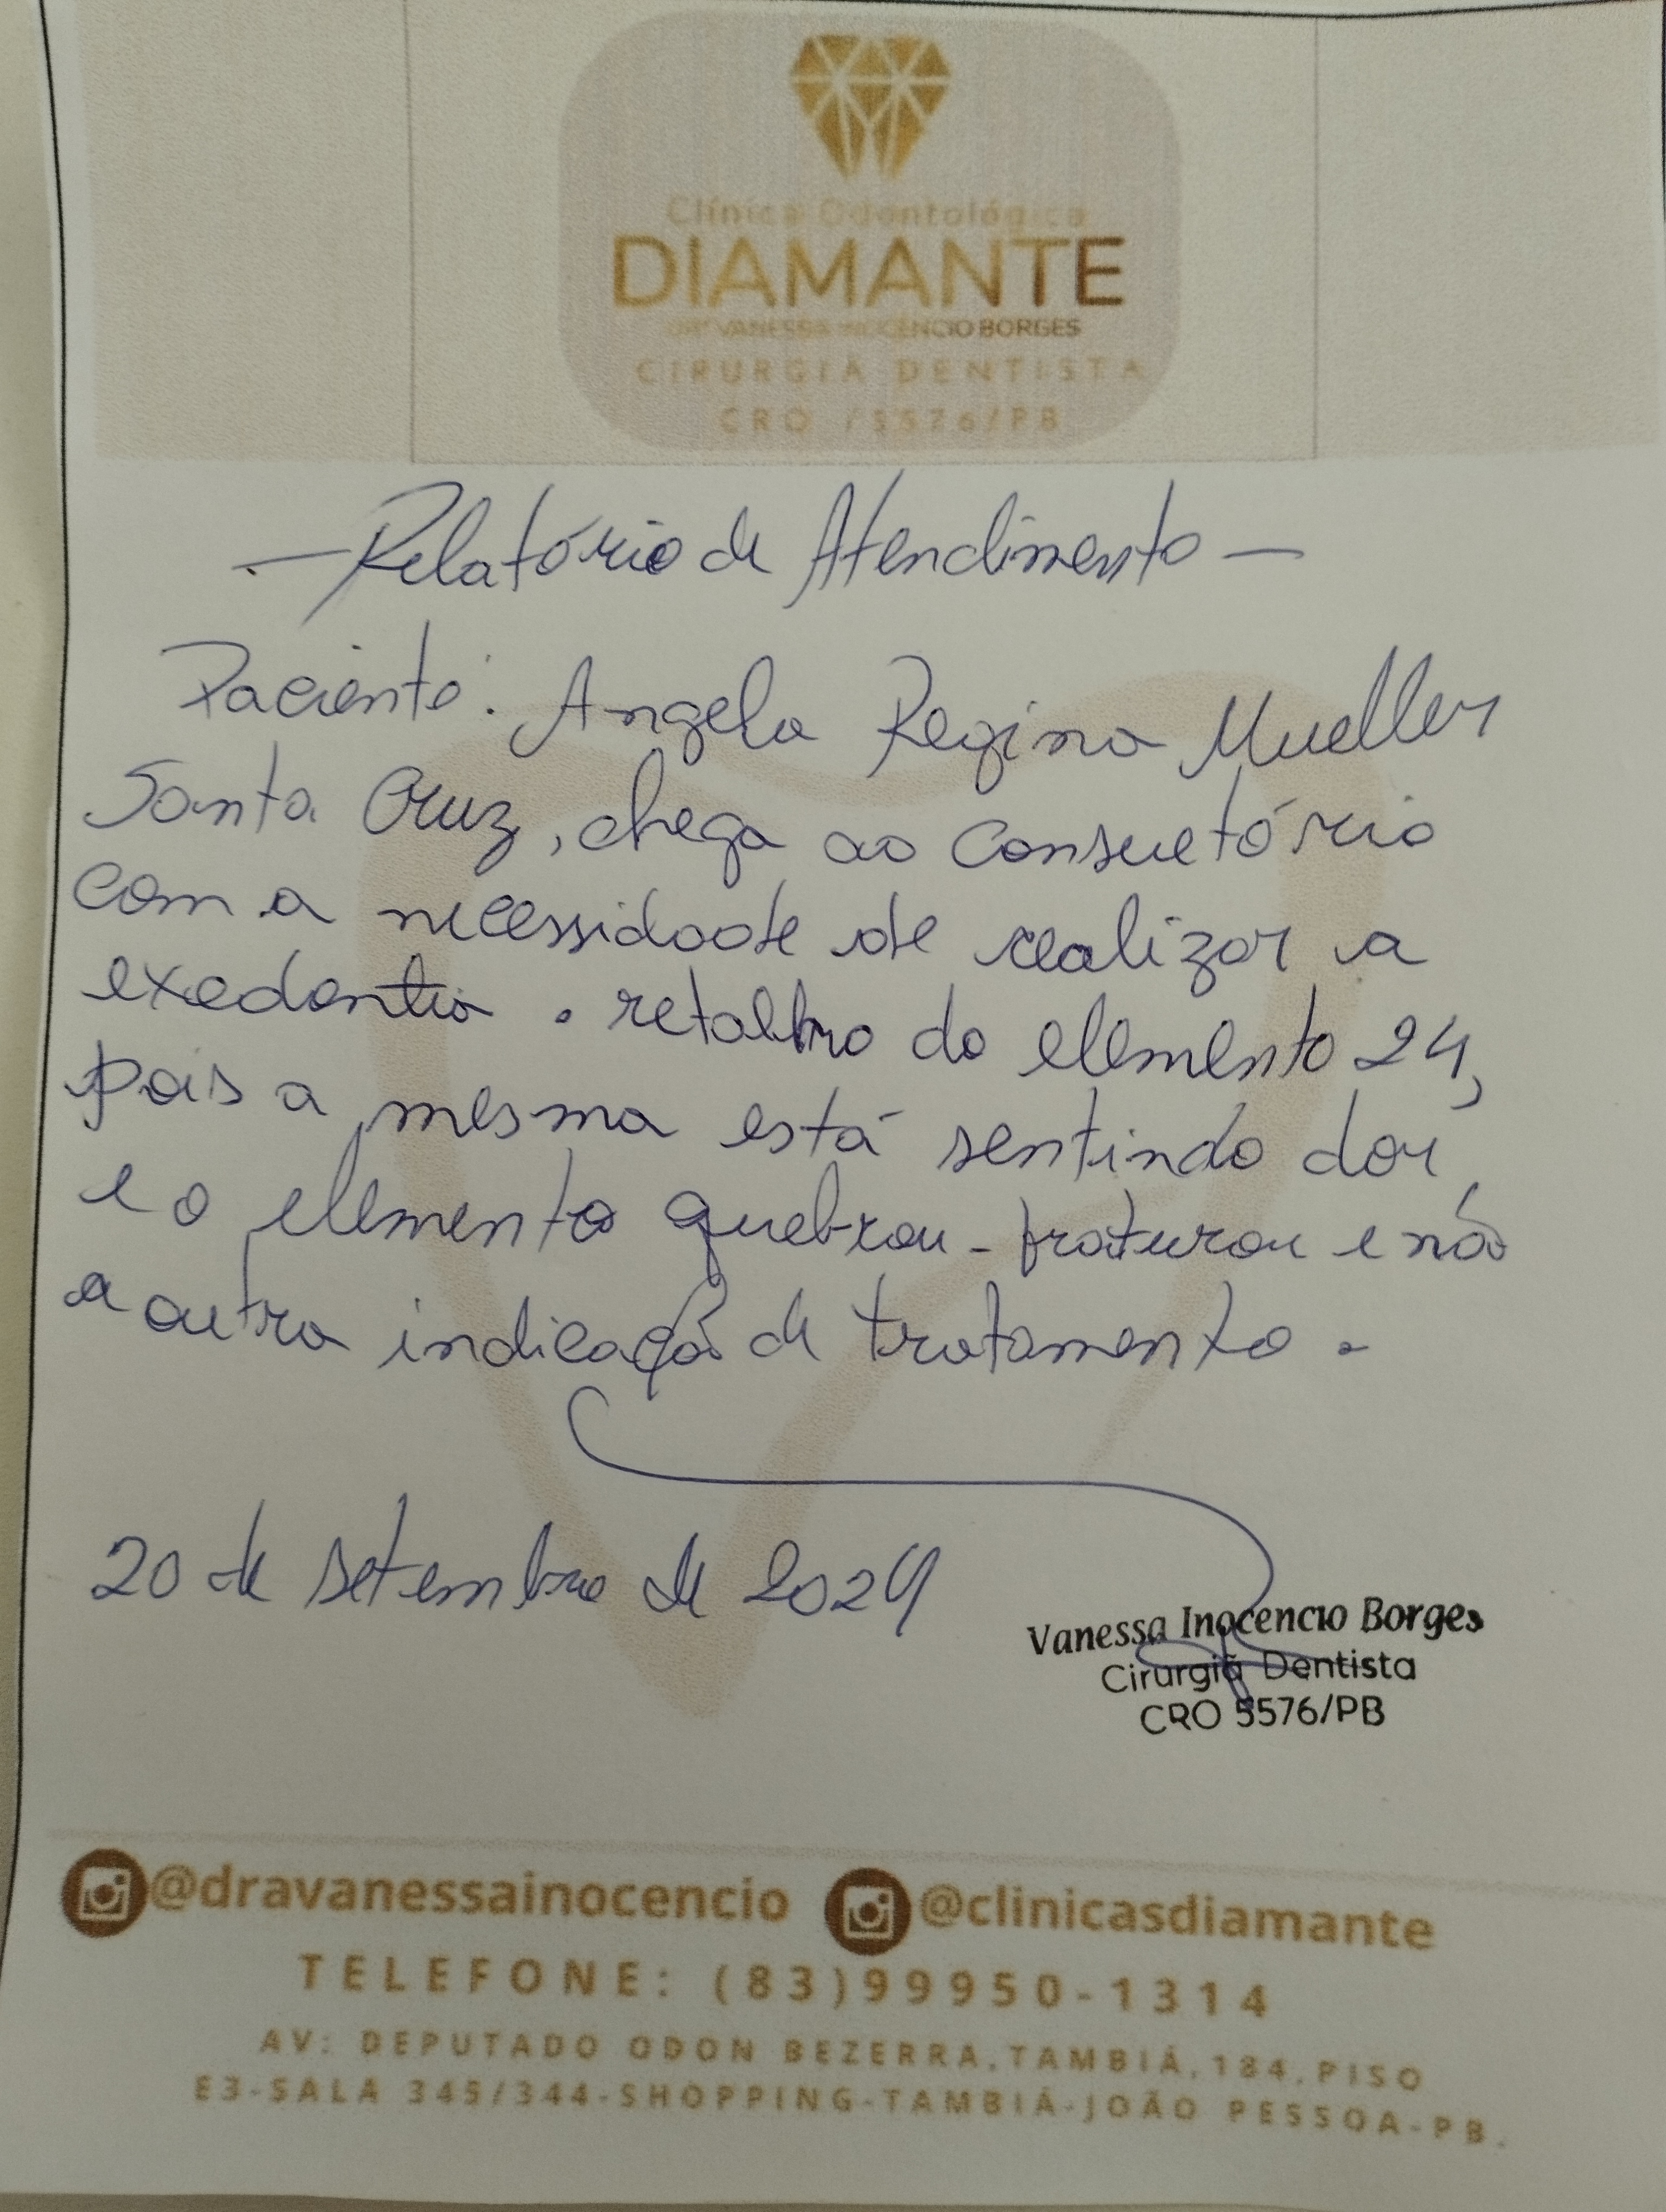 Clínica Odontológica
DIAMANTE
DRª VANESSA INOCENCIO BORGES
CIRURGIÃ DENTISTA
CRO /5576/PB
- Relatório de Atendimento -
Paciente: Angela Regina Mueller
Santa Cruz, chega ao Consultório
com a necessidade de realizar a
exodontia . retalho do elemento 24,
pois a mesma está sentindo dor,
e o elemento quebrou - fraturou e não
a outra indicação de tratamento.
20 de setembro de 2024
Vanessa Inocencio Borges
Cirurgiã Dentista
CRO 5576/PB
@dravanessainocencio @clinicasdiamante
TELEFONE: (83)99950-1314
AV: DEPUTADO ODON BEZERRA,TAMBIÁ,184,PISO
E3-SALA 345/344-SHOPPING-TAMBIÁ-JOÃO PESSOA-PB.